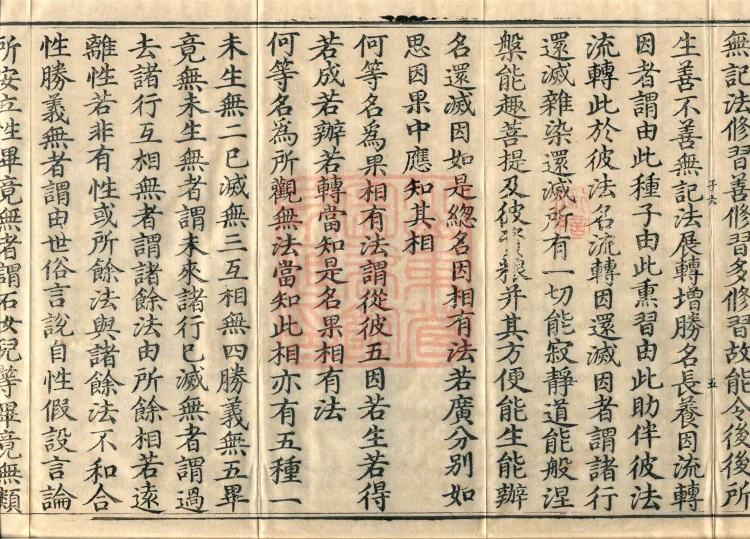 無記法修習善修習多修習故能令後後所
生善不善無記法展轉增勝名長養因流轉
因者謂由此種子由此熏習由此助伴彼法
流轉此於彼法名流轉因還滅因者謂諸行
還滅雜染還滅所有一切能寂靜道能般涅
槃能趣菩提及彼資糧并其方便能生能辦
名還滅因如是總名因相有法若廣分別如
思因果中應知其相
何等名為果相有法謂從彼五因若生若得
若成若辦若轉當知是名果相有法
何等名為所觀無法當知此相亦有五種一
未生無二已滅無三互相無四勝義無五畢
竟無未生無者謂未來諸行已滅無者謂過
去諸行互相無者謂諸餘法由所餘相若遠
離性若非有性或所餘法與諸餘法不和合
性勝義無者謂由世俗言說自性假設言論
所安立性畢竟無者謂石女兒等畢竟無類
子六
五